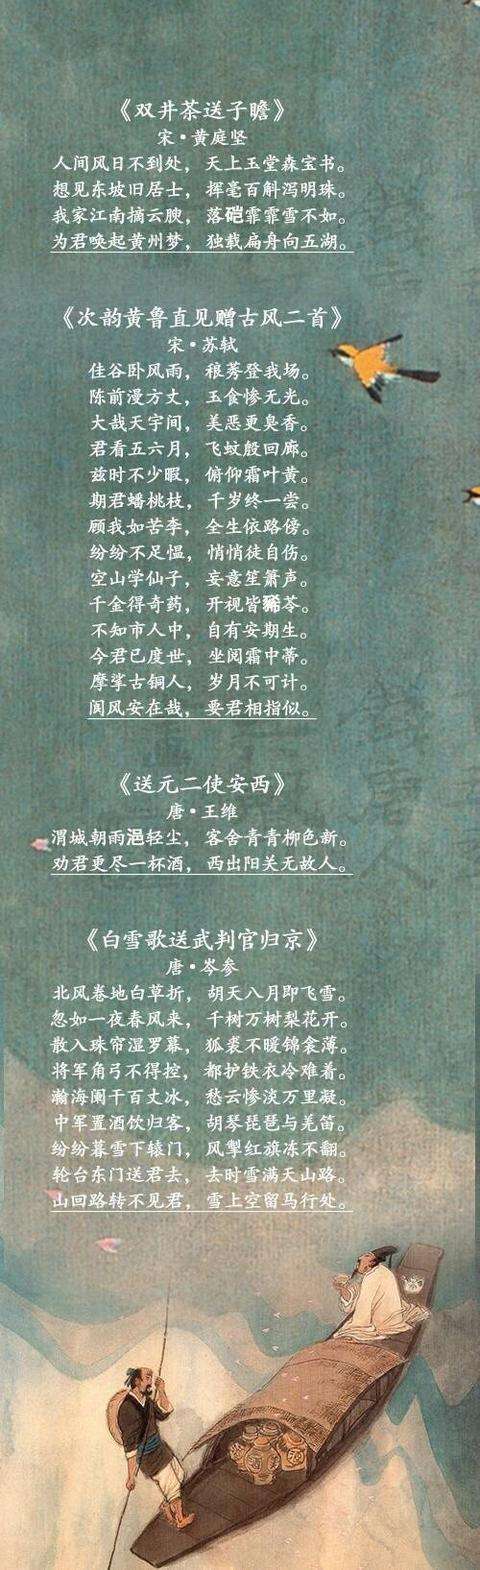 《双井茶送子瞻》
宋·黄庭坚
人间风日不到处，天上玉堂森宝书。
想见东坡旧居士，挥毫百斛泻明珠。
我家江南摘云腴，落硙霏霏雪不如。
为君唤起黄州梦，独载扁舟向五湖。
《次韵黄鲁直见赠古风二首》
宋·苏轼
佳谷卧风雨，稂莠登我场。
陈前漫方丈，玉食惨无光。
大哉天宇间，美恶更臭香。
君看五六月，飞蚊殷回廊。
兹时不少暇，俯仰霜叶黄。
期君蟠桃枝，千岁终一尝。
顾我如苦李，全生依路傍。
纷纷不足愠，悄悄徒自伤。
空山学仙子，妄意笙箫声。
千金得奇药，开视皆豨苓。
不知市人中，自有安期生。
今君已度世，坐阅霜中蒂。
摩挲古铜人，岁月不可计。
阆风安在哉，要君相指似。
《送元二使安西》
唐·王维
渭城朝雨浥轻尘，客舍青青柳色新。
劝君更尽一杯酒，西出阳关无故人。
《白雪歌送武判官归京》
唐·岑参
北风卷地白草折，胡天八月即飞雪。
忽如一夜春风来，千树万树梨花开。
散入珠帘湿罗幕，狐裘不暖锦衾薄。
将军角弓不得控，都护铁衣冷难着。
瀚海阑干百丈冰，愁云惨淡万里凝。
中军置酒饮归客，胡琴琵琶与羌笛。
纷纷暮雪下辕门，风掣红旗冻不翻。
轮台东门送君去，去时雪满天山路。
山回路转不见君，雪上空留马行处。